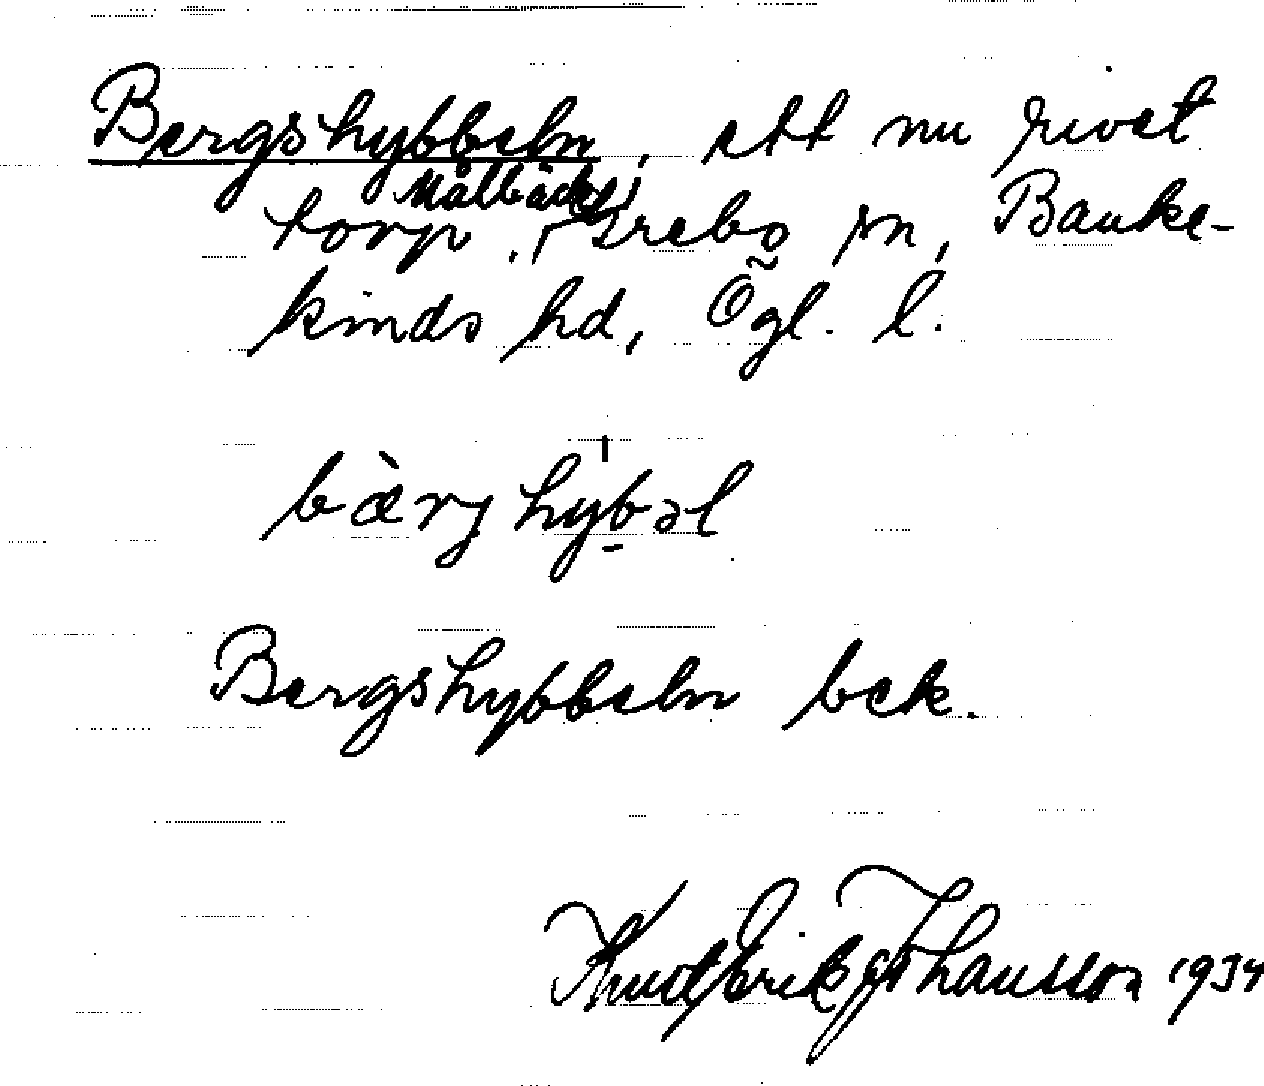 Bergshybbeln, ett nu rivet
torp, Målbäck, Grebo sn, Banke-
kinds hd, Ögl. l.
bærjhybəl
Bergshybbeln bek.
Knut Erik Johansson 1934